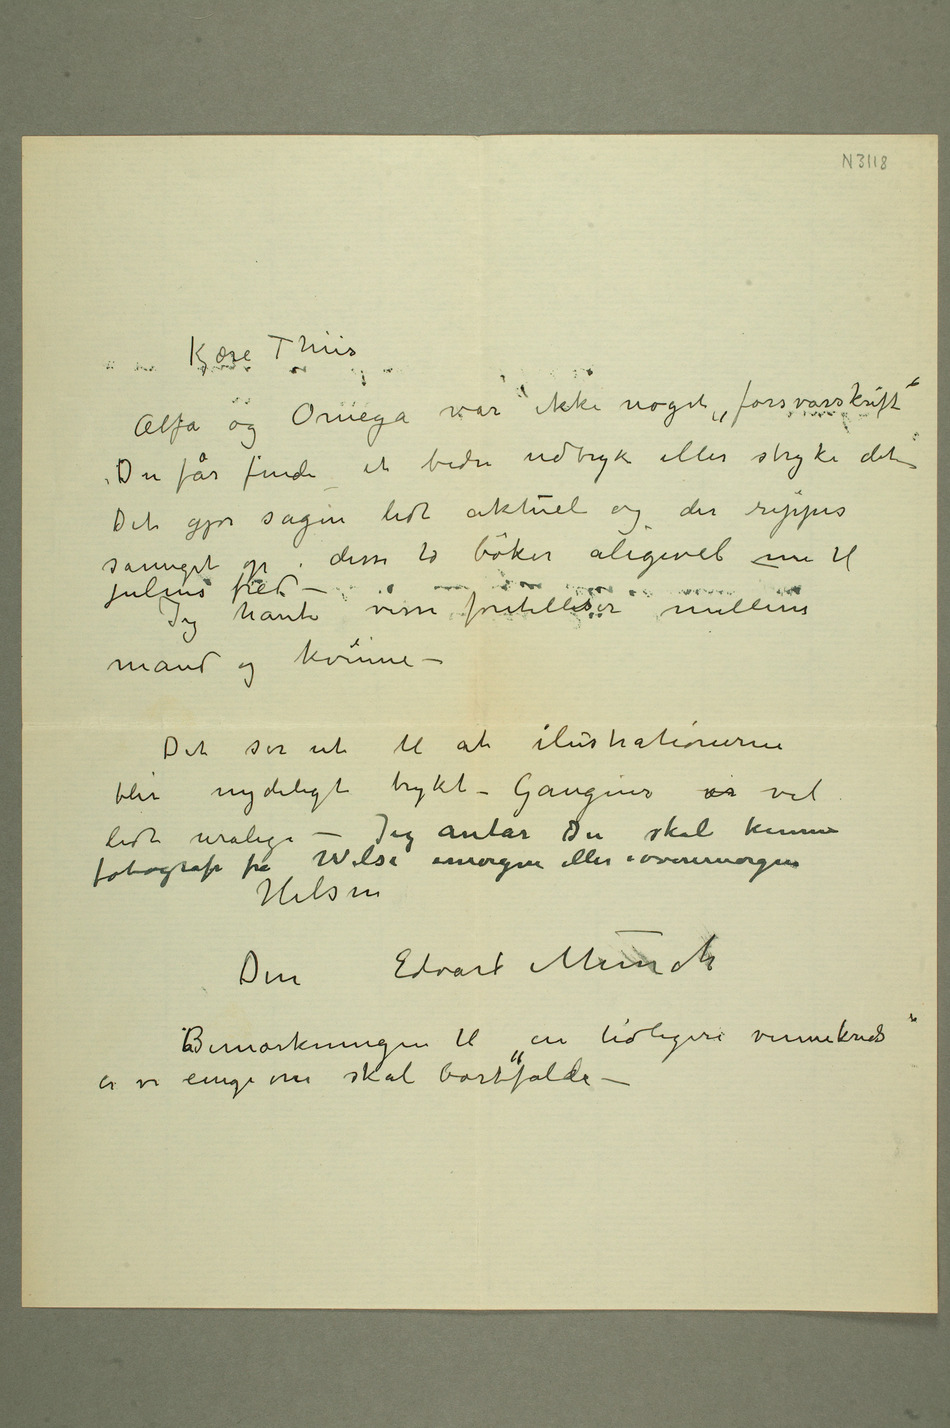 N 3118
Kjære Thiis
Alfa og Omega var ikke noget „forsvarsskrift“
Du får finde et bedre udtryk eller stryke det
Det gjør sagen lidt aktuel og der rippes
op i disse to bøker aligevel til
julens fred –
Jeg havte visse forstillelser mellem
mand og kvinne –
Det ser ut til at ilustrationerne
blir nydeligt trykt – Gaugins er vel
lidt uralige – Jeg antar Du skal kunne
fotografi fra Wilse imorgen eller iovermorgen
Hilsen
Din Edvart Munch
Bemærkningen til „en tidligere vennekreds“
er vi enige om skal bortfalde –